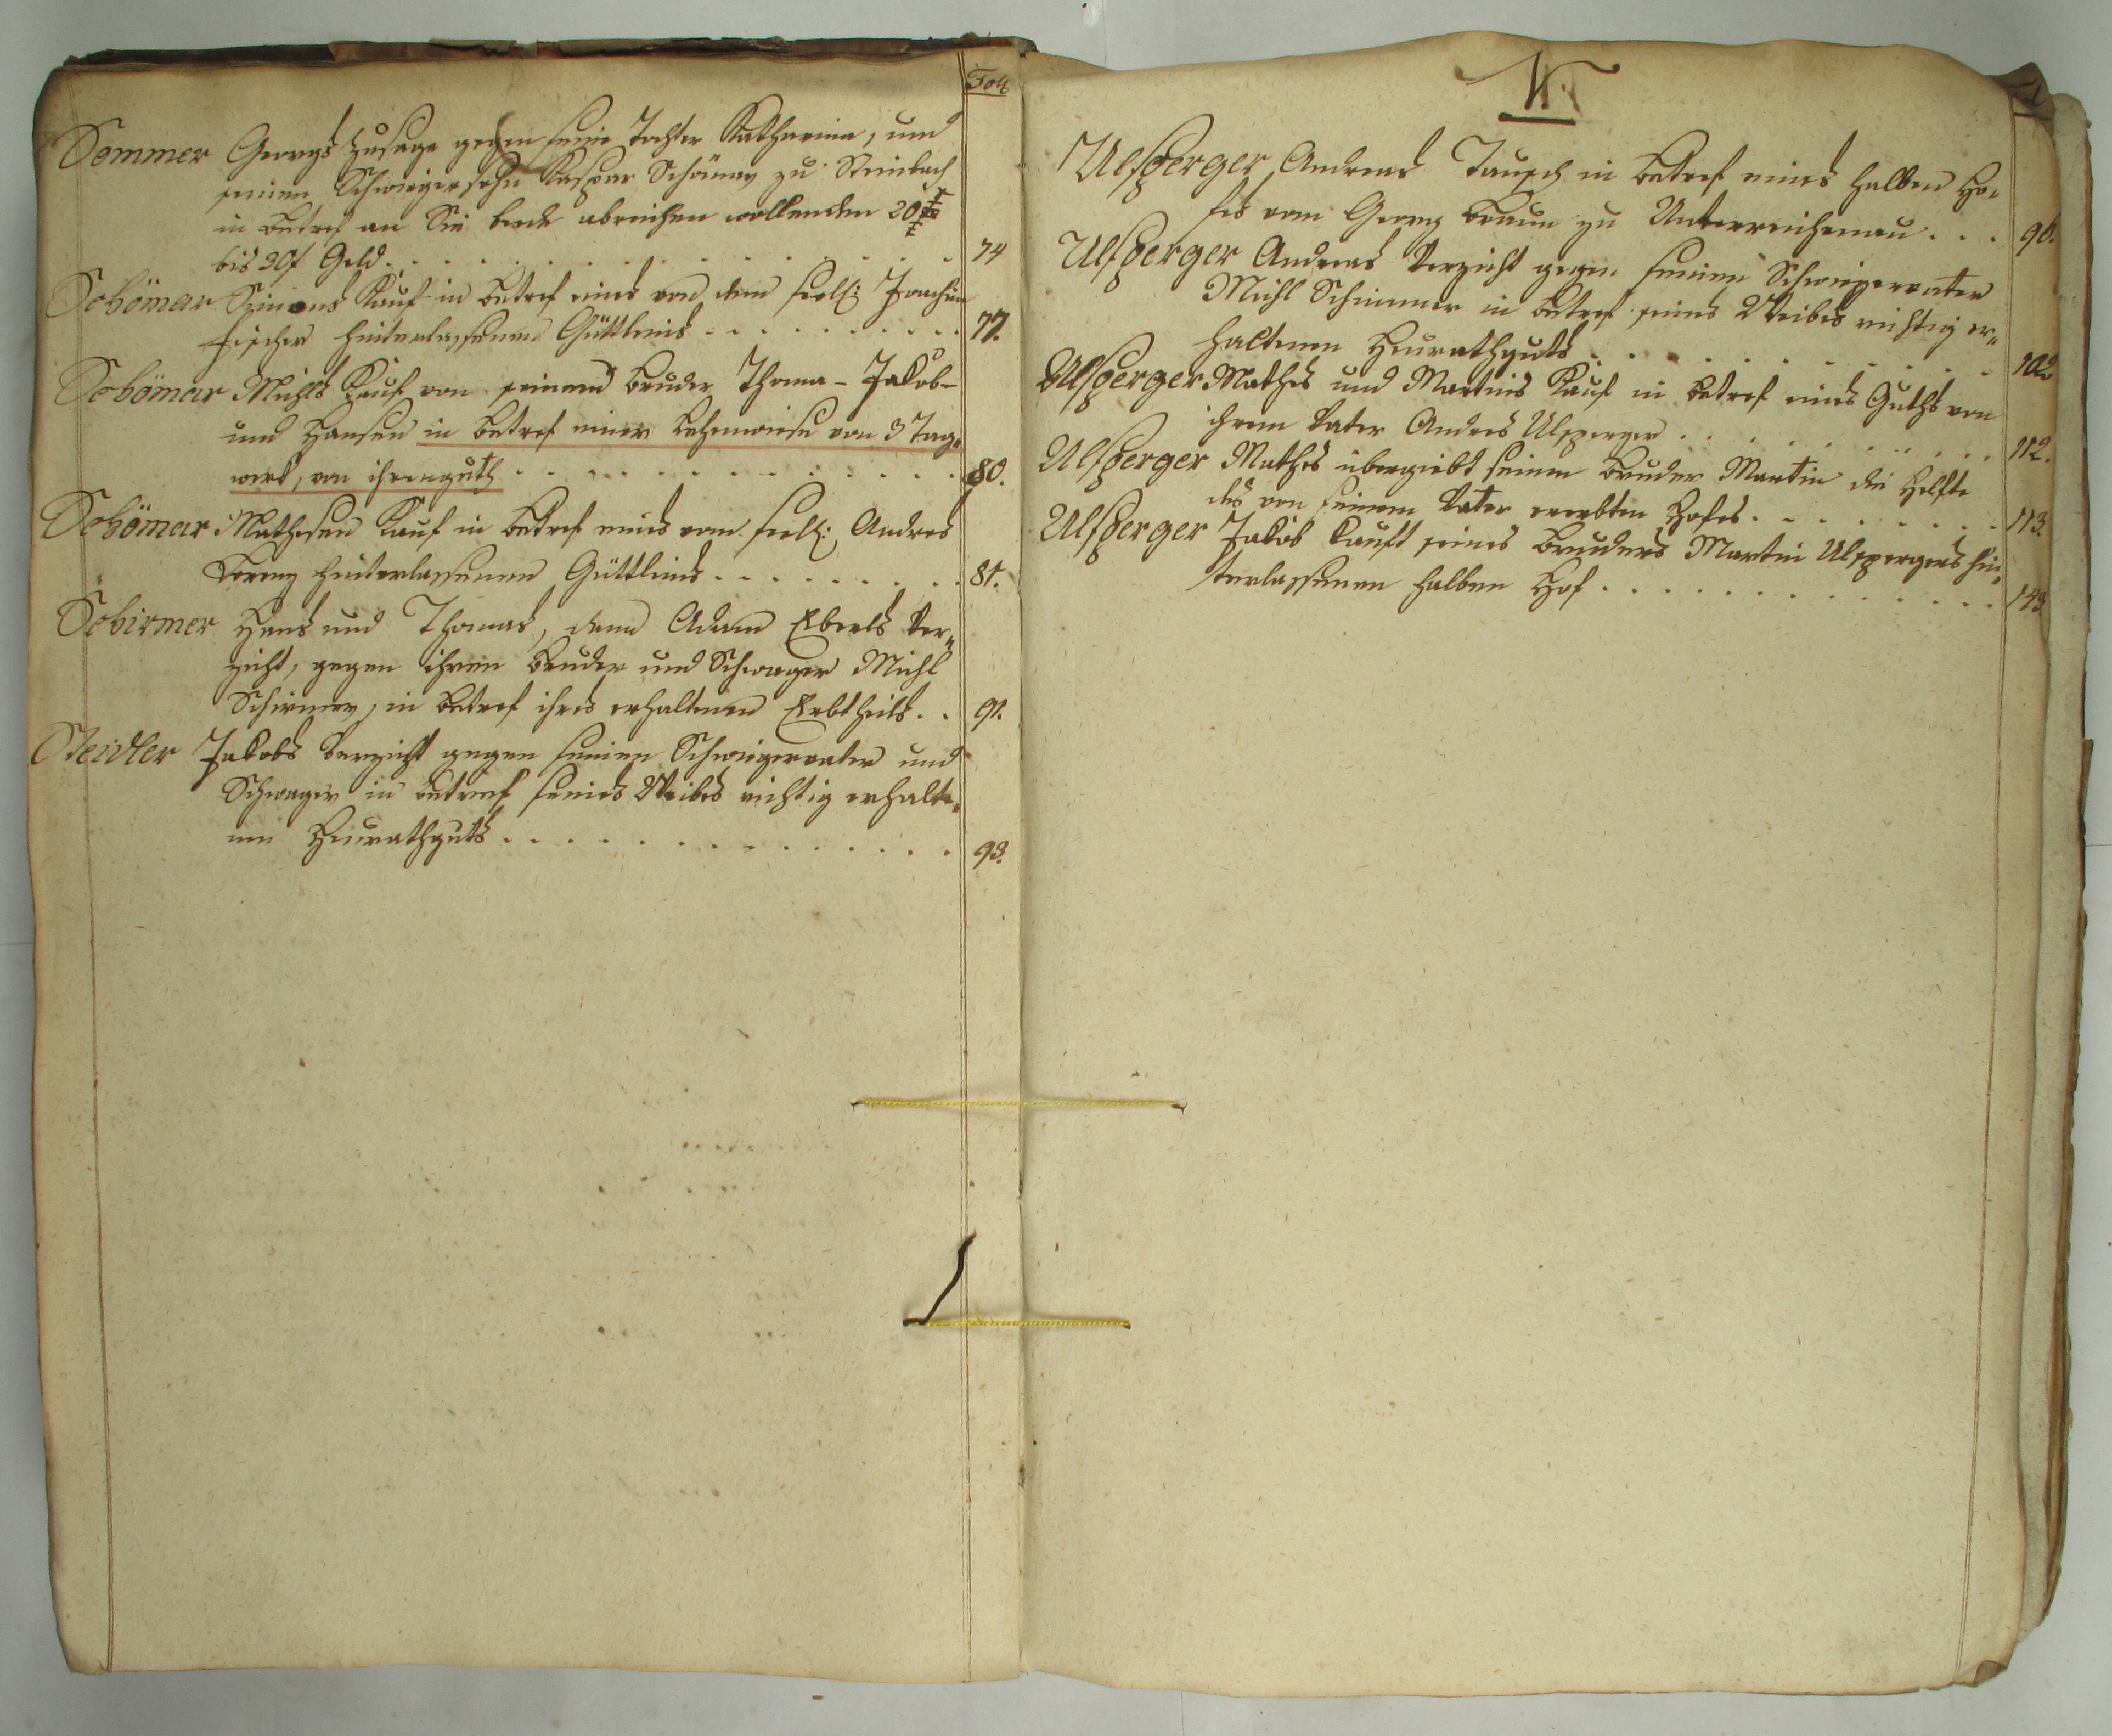 Foli
Sommer Georgs Zusage gegen seine Tochter Katharina, und
seinen Schwiegersohn Kaspar Schömer zu Steinbach
in Betref an Sie beede abreichen wollenden 20
bis 30 f Geld . . . 74
Schömer Simons Kauf in Betref eines von dem seel: Joachim
Fischer hinterlassenen Güttleins . . . 77.
Schömer Michls Kauf von seinem Bruder Thoma - Jakob -
und Hansen in Betref einer Lehenwiese von 3 Tag„
werk, von ihrem guth . . . 80.
Schömer Mathesen Kauf in Betref eines vom seel: Andres
Lorenz hinterlassenen Güttleins . . . 81.
Schirmer Hans und Thomas, dann Adam Eberls Ver„
zicht, gegen ihren Bruder und Schwager Michl
Schirmer, in Betref ihres erhaltenen Erbtheils . . 91.
Steidler Jakobs Verzicht gegen seinen Schwiegervater und
Schwager in Betreef seines Weibes richtig erhalte„
nen Heurathguts . . . 93.
U.
Ulsperger Andreas Tausch in Betref eines halben Ho„
fes vom Georg Braun zu Unterreichenau . . . 90.
Ulsperger Andreas Verzicht gegen seinen Schwiegervater
Michl Schirmer in Betref seines Weibes richtig er„
haltenen Heurathguts . . . 102
Ulsperger Mathes und Martins Kauf in Betref eines Guths von
ihrem Vater Andres Ulsperger . . . 112.
Ulsperger Mathes übergiebt seinem Bruder Martin die Helfte
des von seinem Vater ererbten Hofes . . . 113.
Ulsperger Jakob kauft seines Bruders Martin Ulspergers hin„
terlassenen halben Hof . . . 143